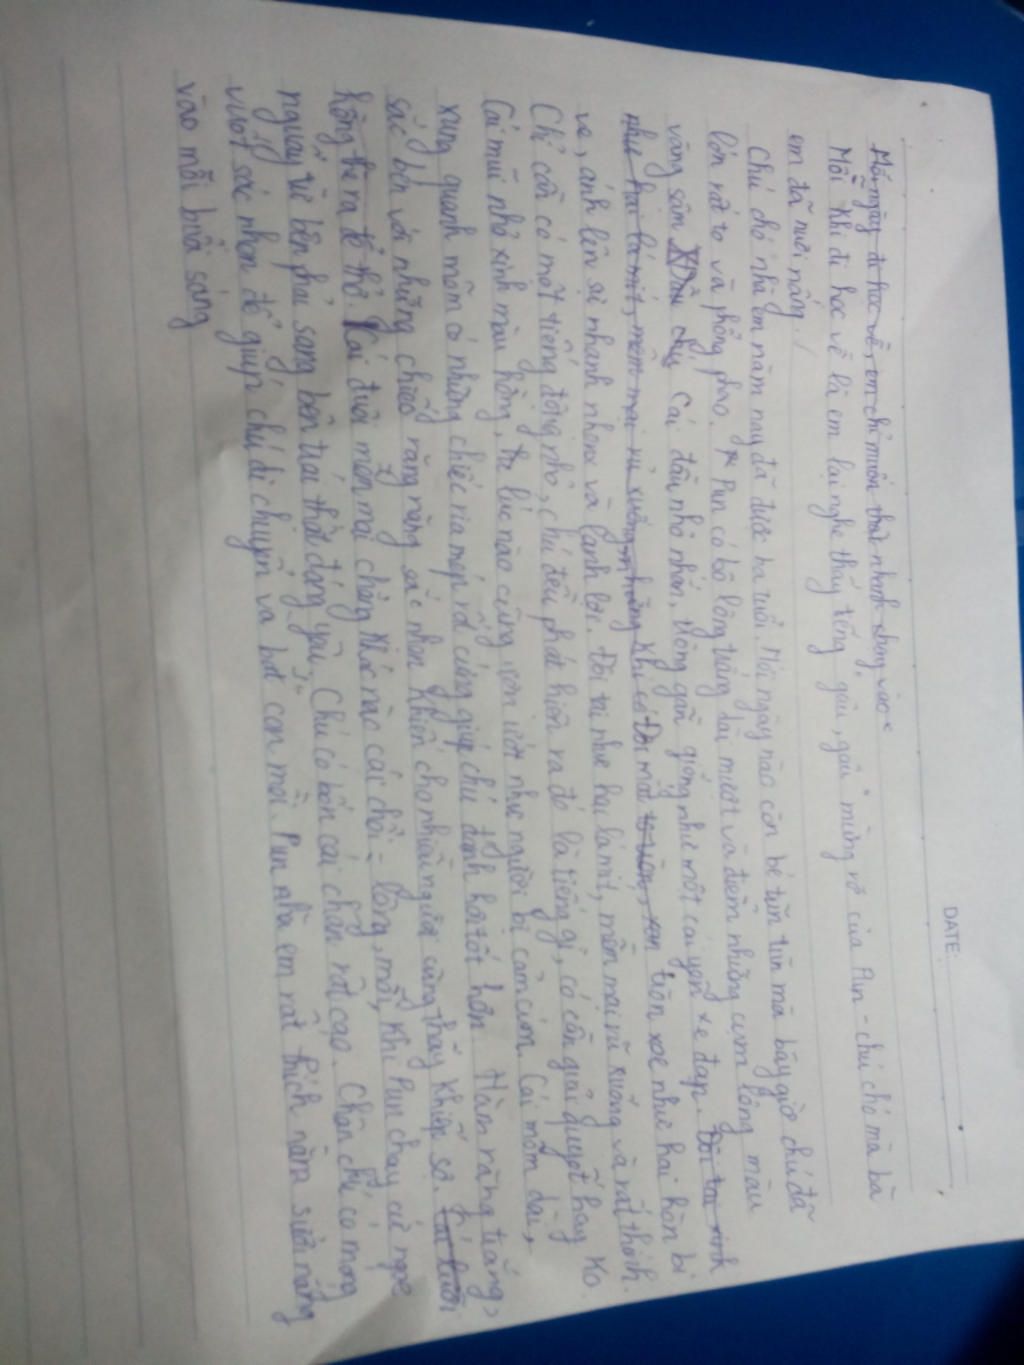 DATE:
Mỗi ngày đi học về, em chỉ muốn thật nhanh chạy vào
Mỗi khi đi học về là em lại nghe thấy tiếng gâu, gâu mừng rỡ của Pun - chú chó mà bà
em đã nuôi nấng.
Chú chó nhà em năm nay đã được ba tuổi. Mới ngày nào còn bé tủn tủn mà bây giờ chú đã
lớn rất to và phổng phao. Pun có bộ lông trắng dài mượt và điểm những cụm lông màu
vàng sẫm. Cái đầu nhỏ nhắn, trông gần giống như một cái yên xe đạp. Đôi tai xinh
như hai lá mít, mềm mại rủ xuống Đôi mắt to tròn, tròn xoe như hai hòn bi
ve, ánh lên sự nhanh nhẹn và lanh lợi. Đôi tai như hai lá mít, mềm mại rũ xuống và rất thính.
Chỉ cần có một tiếng động nhỏ, chú đều phát hiện ra đó là tiếng gì, có cần giải quyết hay ko.
Cái mũi nhỏ xinh màu hồng, lúc nào cũng ươn ướt như người bị cảm cúm. Cái mõm dài,
xung quanh mõm có những chiếc ria mép rất cứng giúp chú đánh hơi tốt hơn. Hàm răng trắng,
sắc bén với những chiếc răng nanh sắc nhọn khiến cho nhiều người cũng thấy khiếp sợ. Cái lưỡi
hồng thè ra để thở. Cái đuôi mềm mại chẳng khác nào cái chổi lông, mỗi khi Pun chạy cứ ngoe
nguẩy từ bên phải sang bên trái thật đáng yêu. Chú có bốn cái chân rất cao. Chân chú có móng
vuốt sắc nhọn để giúp chú di chuyển và bắt con mồi. Pun nhà em rất thích nằm sưởi nắng
vào mỗi buổi sáng